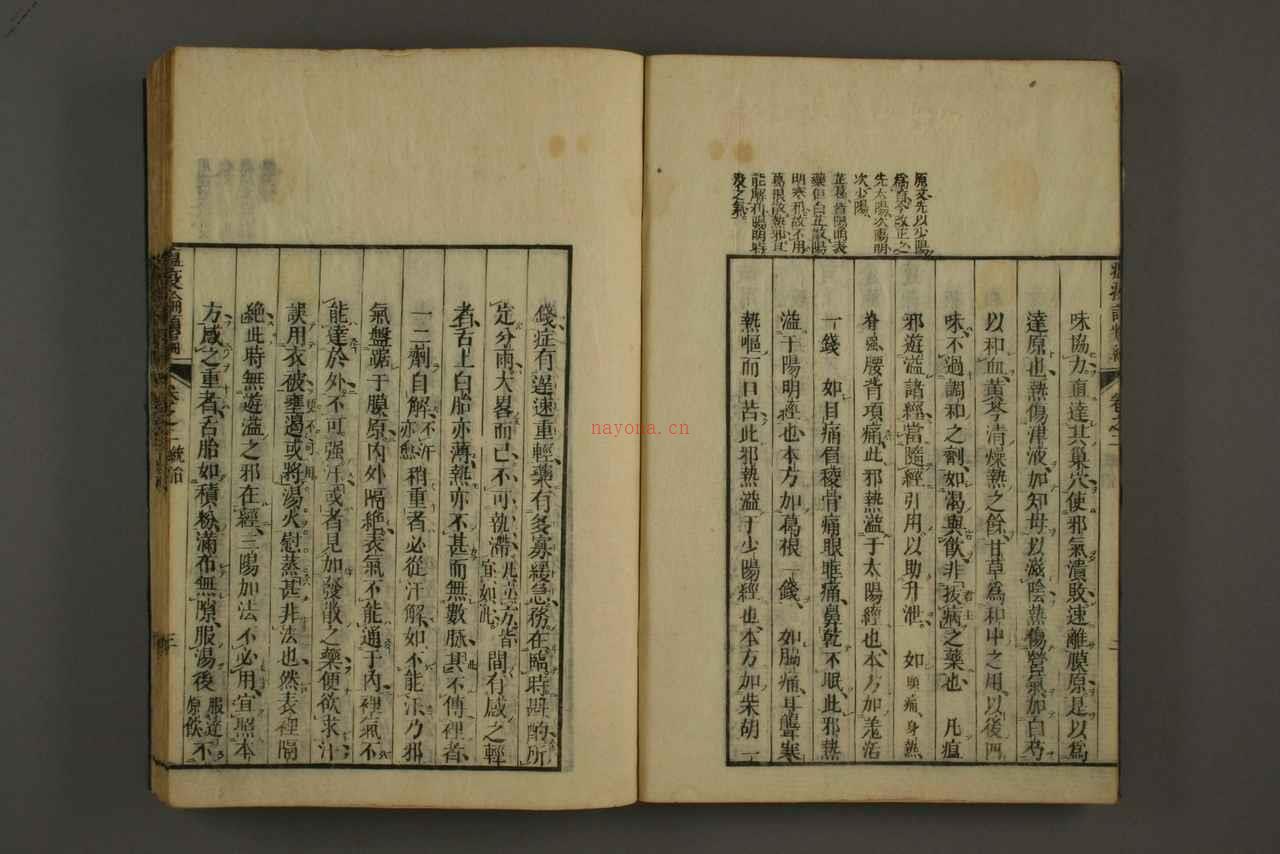 原文先以少陽
先太陽次陽明
次少陽
藥但白芷散陽
明寒邪故不用
葛根
能解利陽明
味協力直達其巢穴使邪氣潰敗速離膜原是以爲
達原也熱傷津液加知母以滋陰熱傷營氣加白芍
以和血黃芩清燥熱之餘甘草爲和中之用以後四
味不過調和之劑如渴與飲非拔病之藥也 凡瘟
邪遊溢諸經當隨經引用以助升泄 如頭痛身熱
脊強腰背項痛此邪熱溢于太陽經也本方加羌活
一錢 如目痛眉稜骨痛眼眶痛鼻乾不眠此邪熱
溢于陽明經也本方加葛根一錢 如脇痛耳聾寒
熱嘔而口苦此邪熱溢于少陽經也本方加柴胡一
卷之二
二
錢症有遲速重輕藥有多寡緩急務在臨時斟酌所
定分兩大畧而已不可執滯凡並方皆宜如此間有感之輕
者舌上白胎亦薄熱亦不甚而無數脈其不傳裡者
一二劑自解不汗亦愈稍重者必從汗解如不能汗乃邪
氣盤踞于膜原內外隔絶表氣不能通于內裡氣不
能達於外不可强汗或者見加發散之藥便欲求汗
誤用衣被壅遏或將湯火慰蒸甚非法也然表裡隔
絶此時無遊溢之邪在經三陽加法不必用宜照本
方感之重者舌胎如積粉滿布無隙服湯後服達原飲不
瘟疫論類編 卷之二 統治
三
nayona.cn